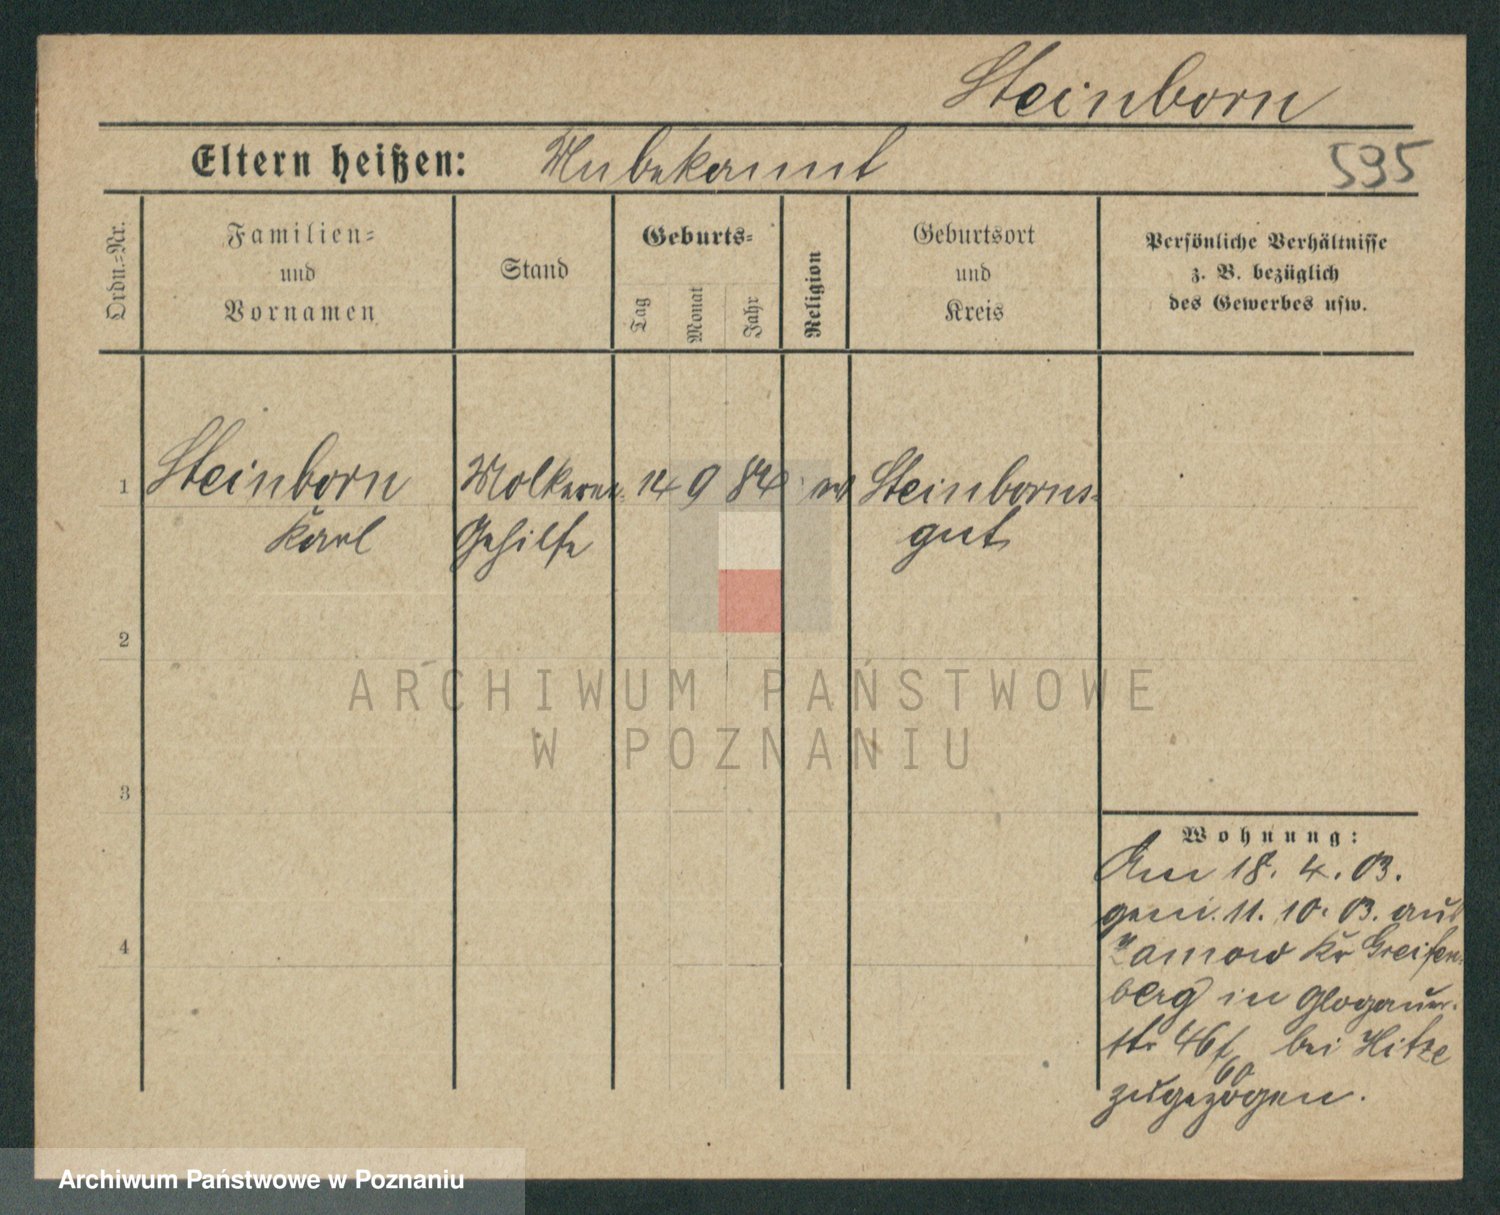 Steinborn
Eltern heißen: Unbekannt
595
Ordn.-Nr.
Familien-
und
Vornamen
Stand
Geburts-
Tag
Monat
Jahr
Religion
Geburtsort
und
Kreis
Persönliche Verhältnisse
z. B. bezüglich
des Gewerbes usw.
1
Steinborn Molkerei- 14 9 84 ev Steinborns-
Karl Gehilfe gut
2
ARCHIWUM PAŃSTWOWE
W POZNANIU
3
Wohnung:
Am 18. 4. 03.
gem. 11. 10. 03. aus
Zamow Kr Greifen-
4
berg in Glogauer-
str 46 bei Hitze
60
zugezogen.
Archiwum Państwowe w Poznaniu